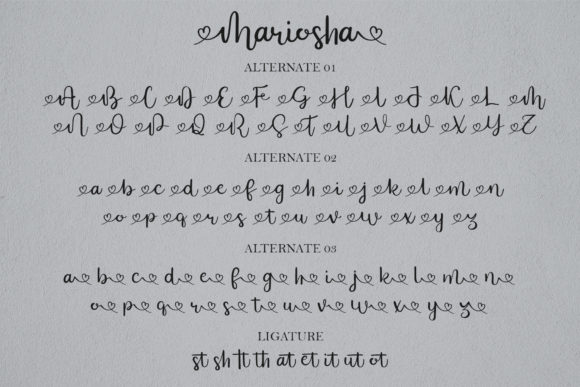 Mariosha
ALTERNATE 01
A B C D E F G H I J K L M
N O P Q R S T U V W X Y Z
ALTERNATE 02
a b c d e f g h i j k l m n
o p q r s t u v w x y z
ALTERNATE 03
a b c d e f g h i j k l m n
o p q r s t u v w x y z
LIGATURE
st sh tt th at et it ut ot